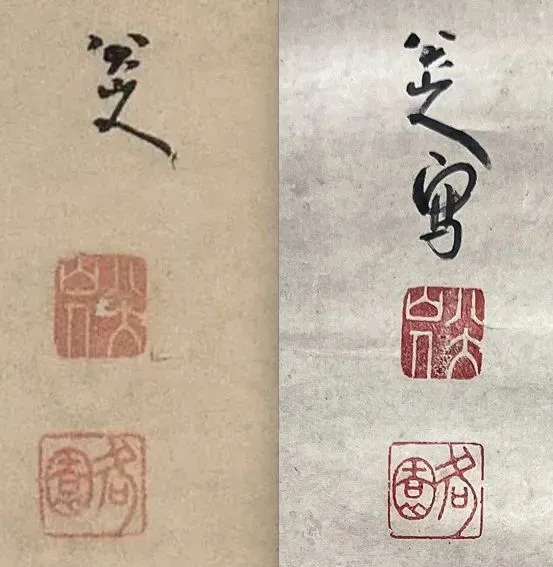 八大山人
八大山人
何園
八大山人寫
八大山人
何園